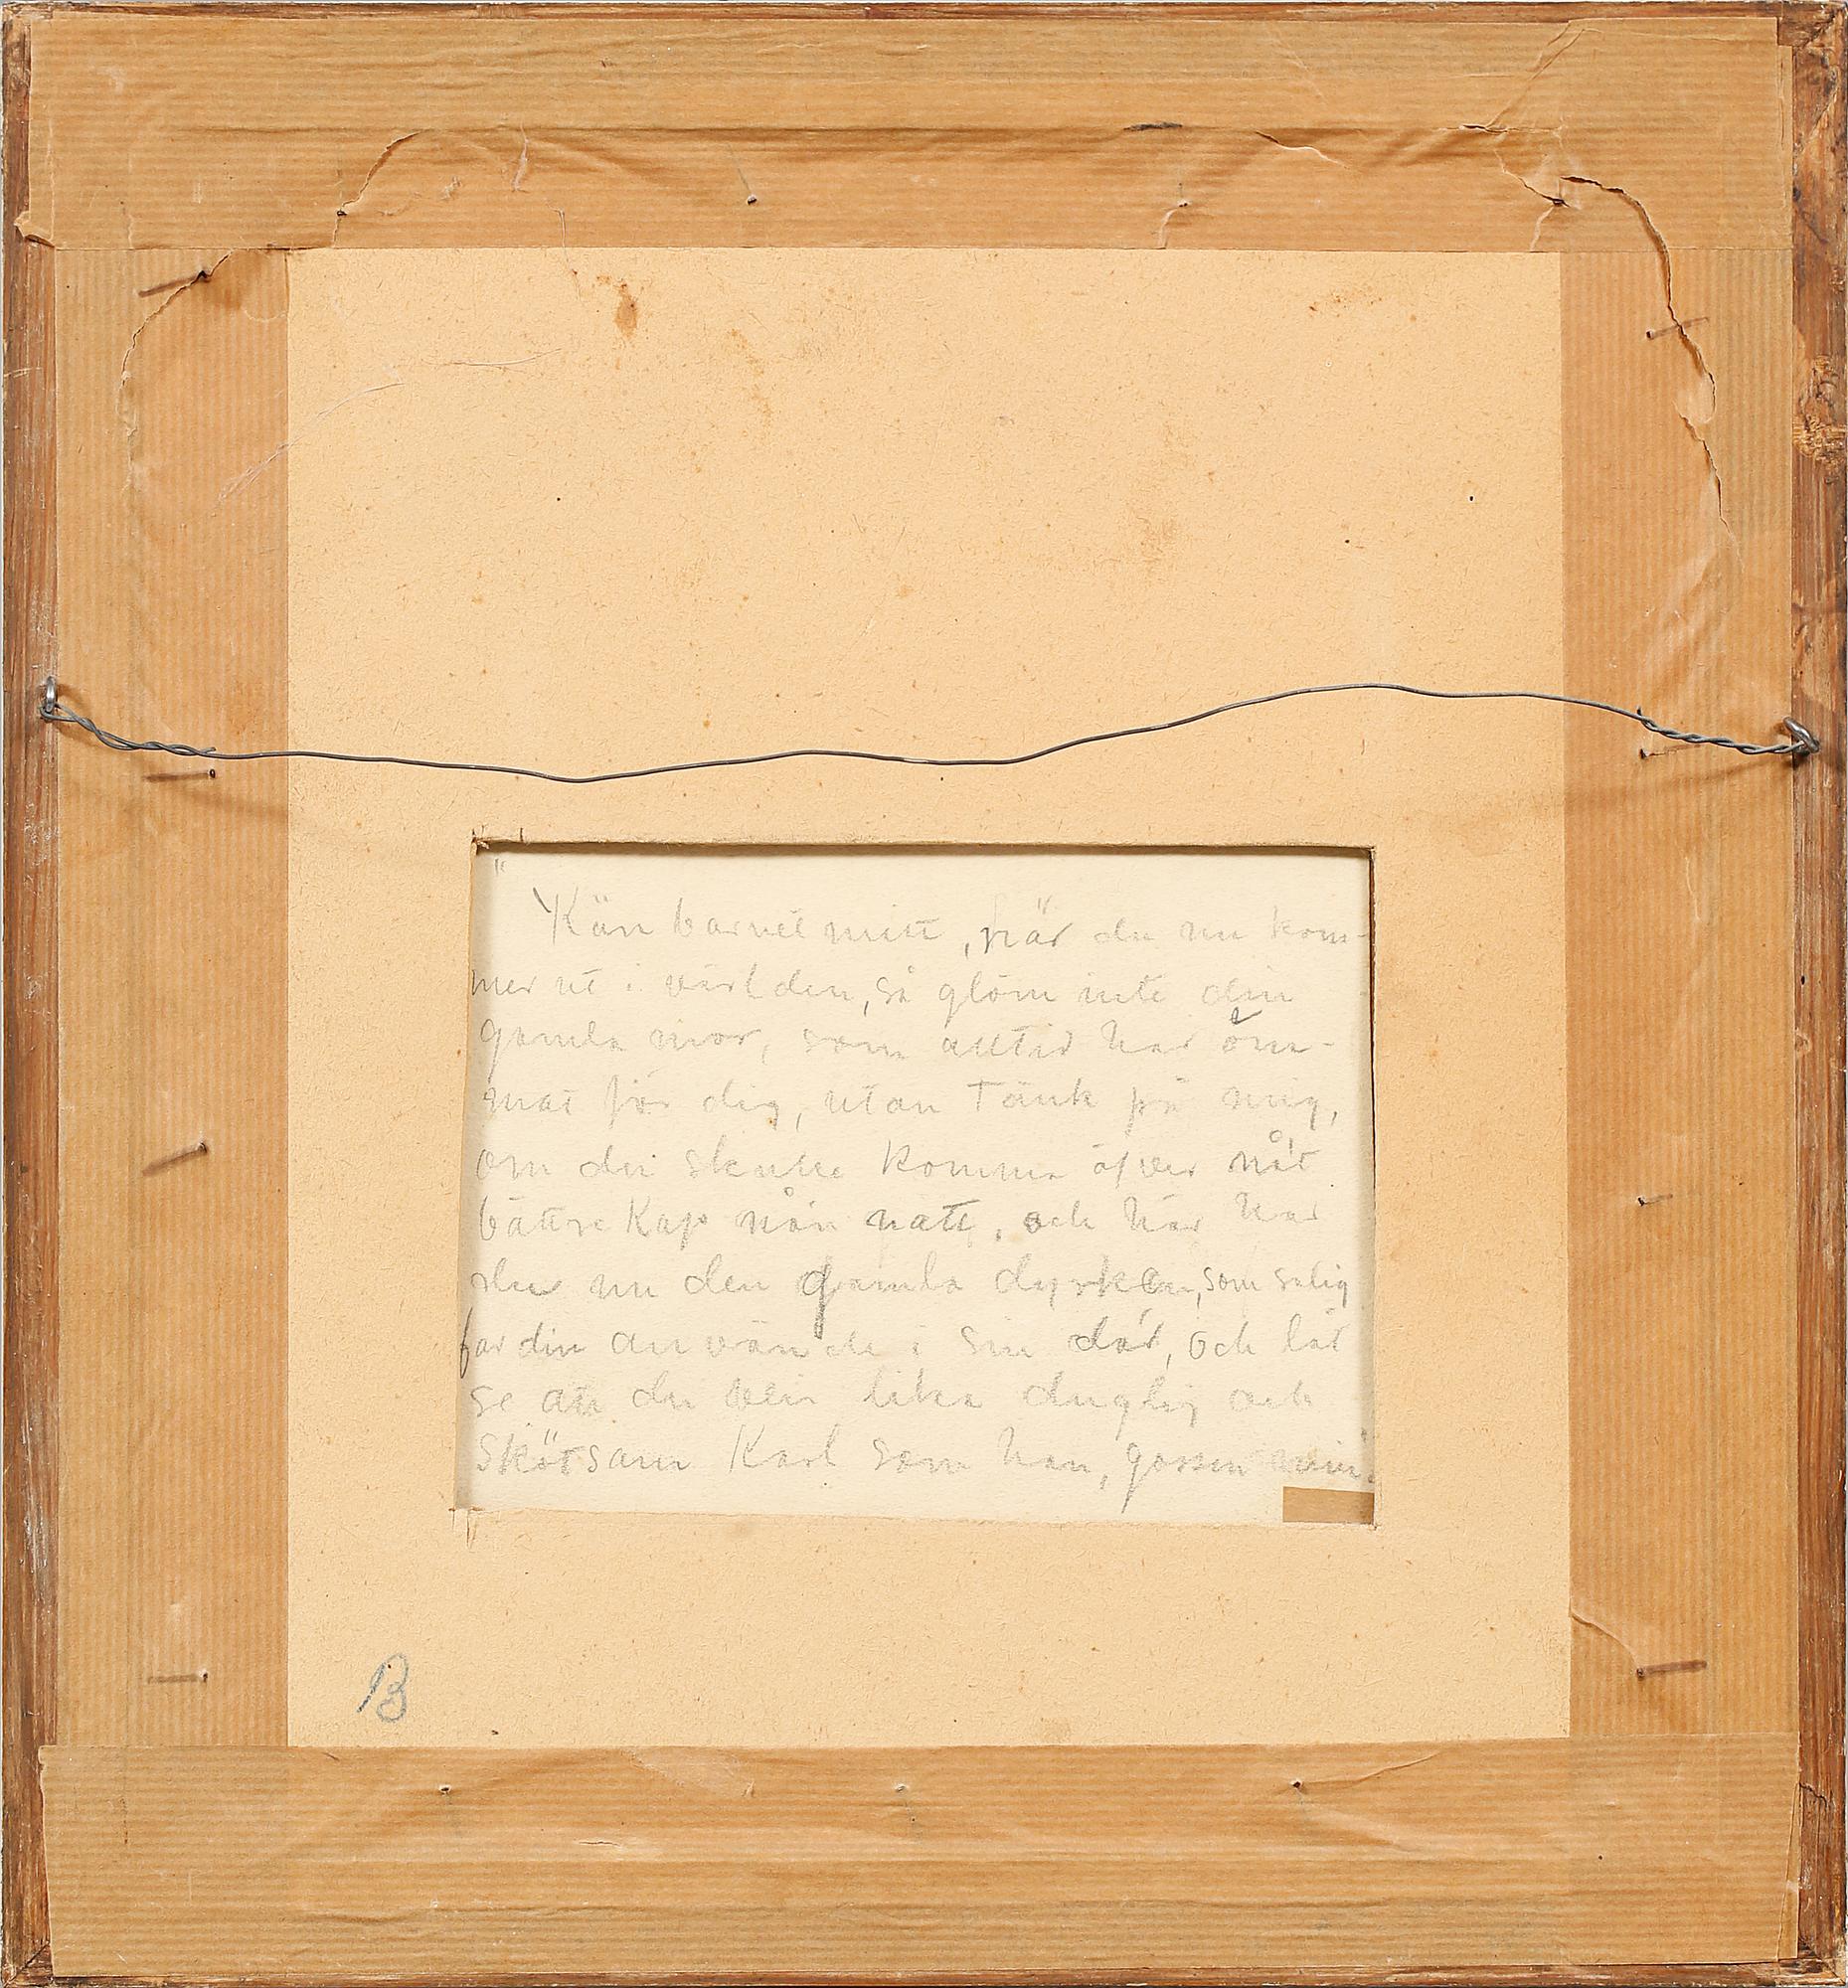 "Kän barnet mitt, när du nu kom-
mer ut i världen, så glöm inte din
gamla mor, som alltid har öm-
mat för dig, utan tänk på mig,
om du skulle komma öfver nåt
bättre kap nån natt, och här har
du nu den gamla dyrken, som salig
far din använde i sin dar, och låt
se att du blir lika duglig och
skötsam karl som han, gossen min.
B